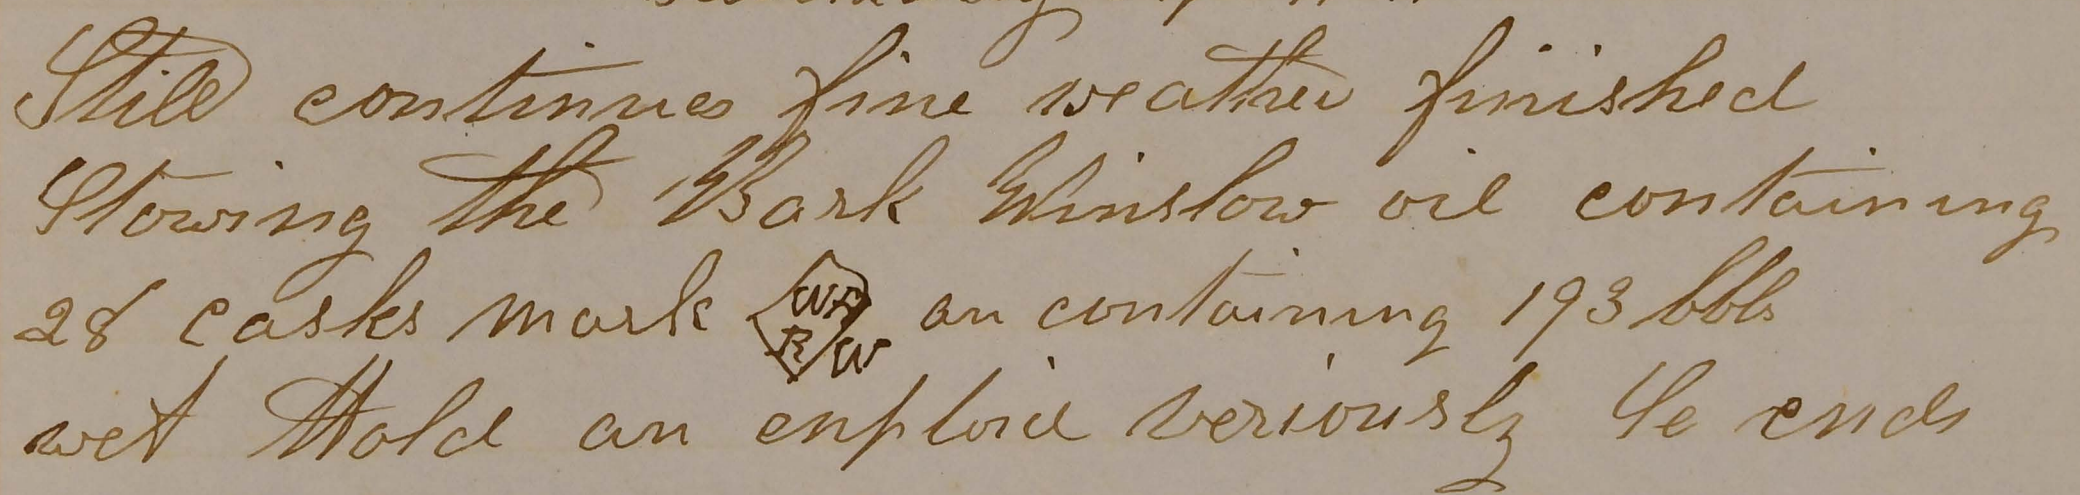 Still continues fine weather finished
Stowing the Bark Winslow oil containing
28 casks mark W R W an containing 193 bbls
wet Hold an enploid veriously So ends